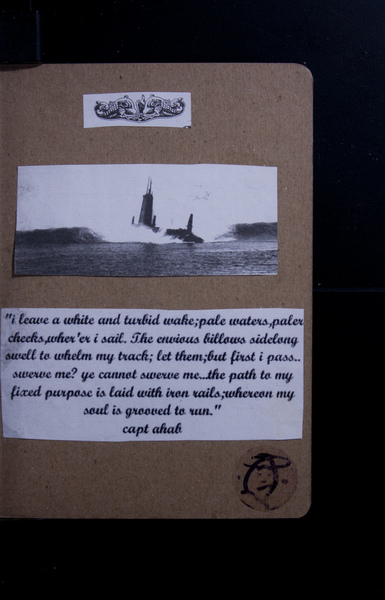 "i leave a white and turbid wake;pale waters,paler
cheeks,wher'er i sail. The envious billows sidelong
swell to whelm my track; let them;but first i pass..
swerve me? ye cannot swerve me...the path to my
fixed purpose is laid with iron rails;whereon my
soul is grooved to run."
capt ahab